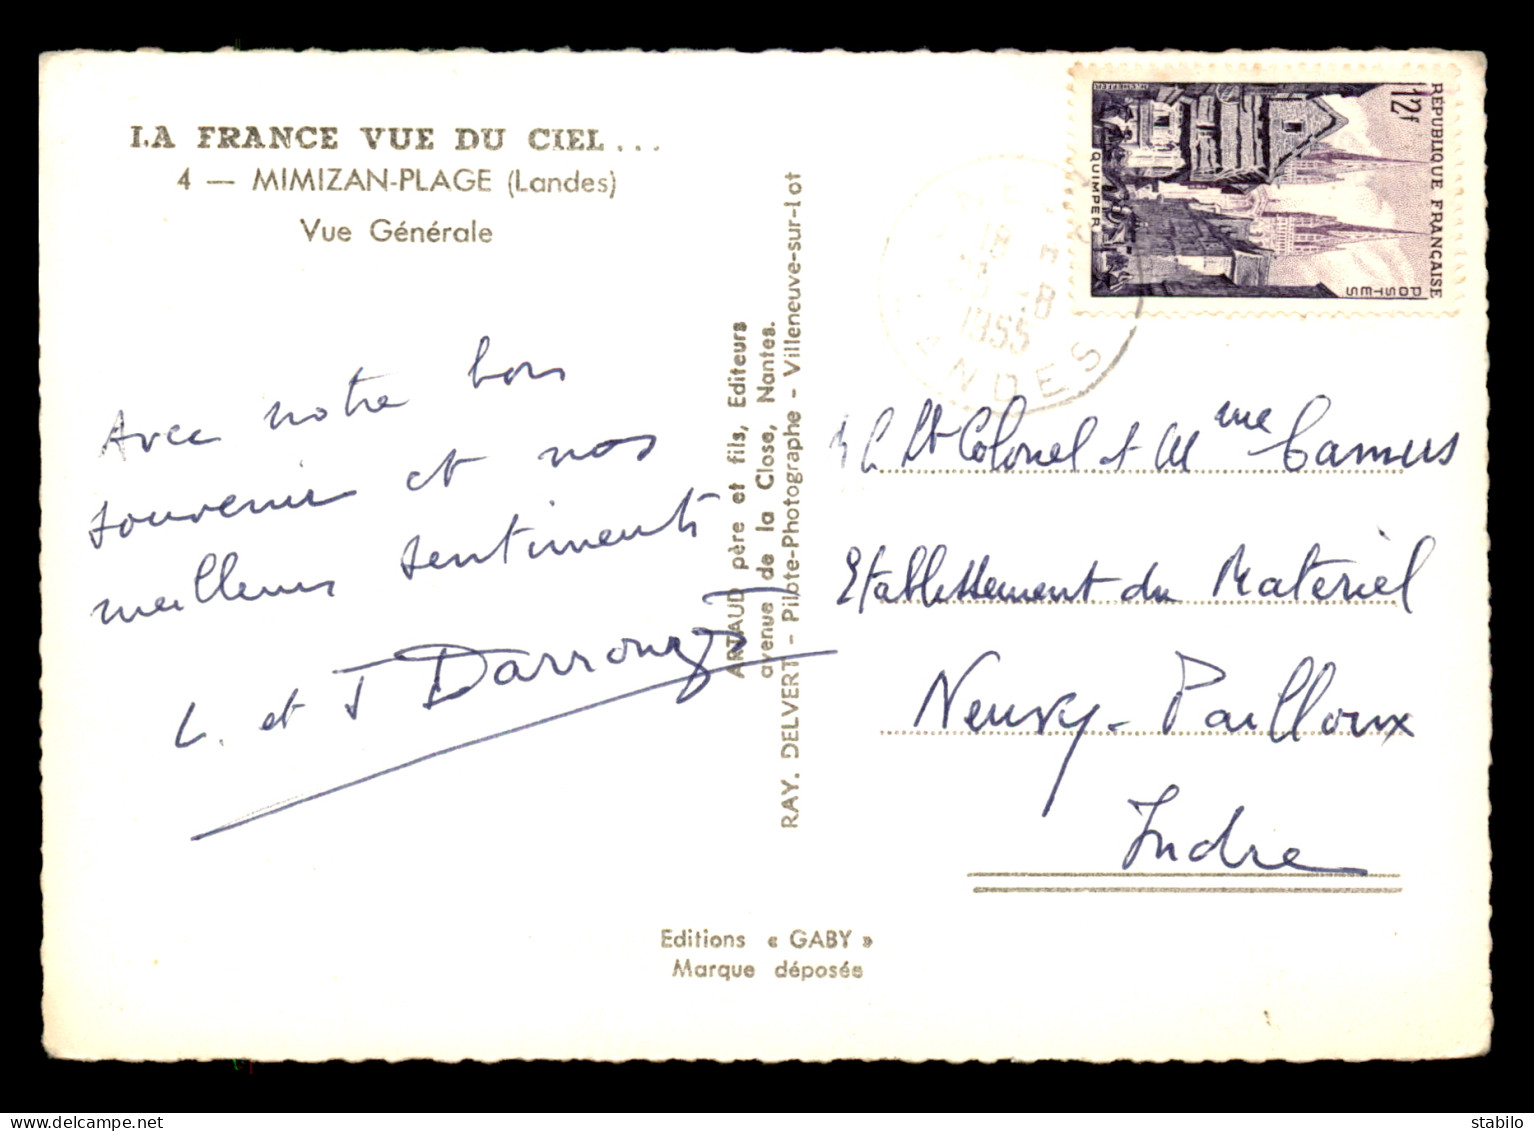 LA FRANCE VUE DU CIEL...
4 — MIMIZAN-PLAGE (Landes)
Vue Générale
Avec notre bon
souvenir et nos
meilleurs sentiments
L. et J Darrouzet
ARTAUD père et fils, Editeurs
avenue de la Close, Nantes.
RAY. DELVERT - Pilote-Photographe - Villeneuve-sur-Lot
RÉPUBLIQUE FRANÇAISE
12f
POSTES
QUIMPER
18
-8
1955
LANDES
Lt Colonel et Mme Camus
Etablissement du Matériel
Neuvy-Pailloux
Indre
Editions « GABY »
Marque déposée
stabilo